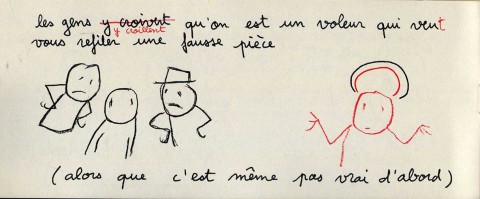 les gens y croivert qu'on est un voleur qui veut
y croillent
vous refiler une fausse pièce
(alors que c'est même pas vrai d'abord)